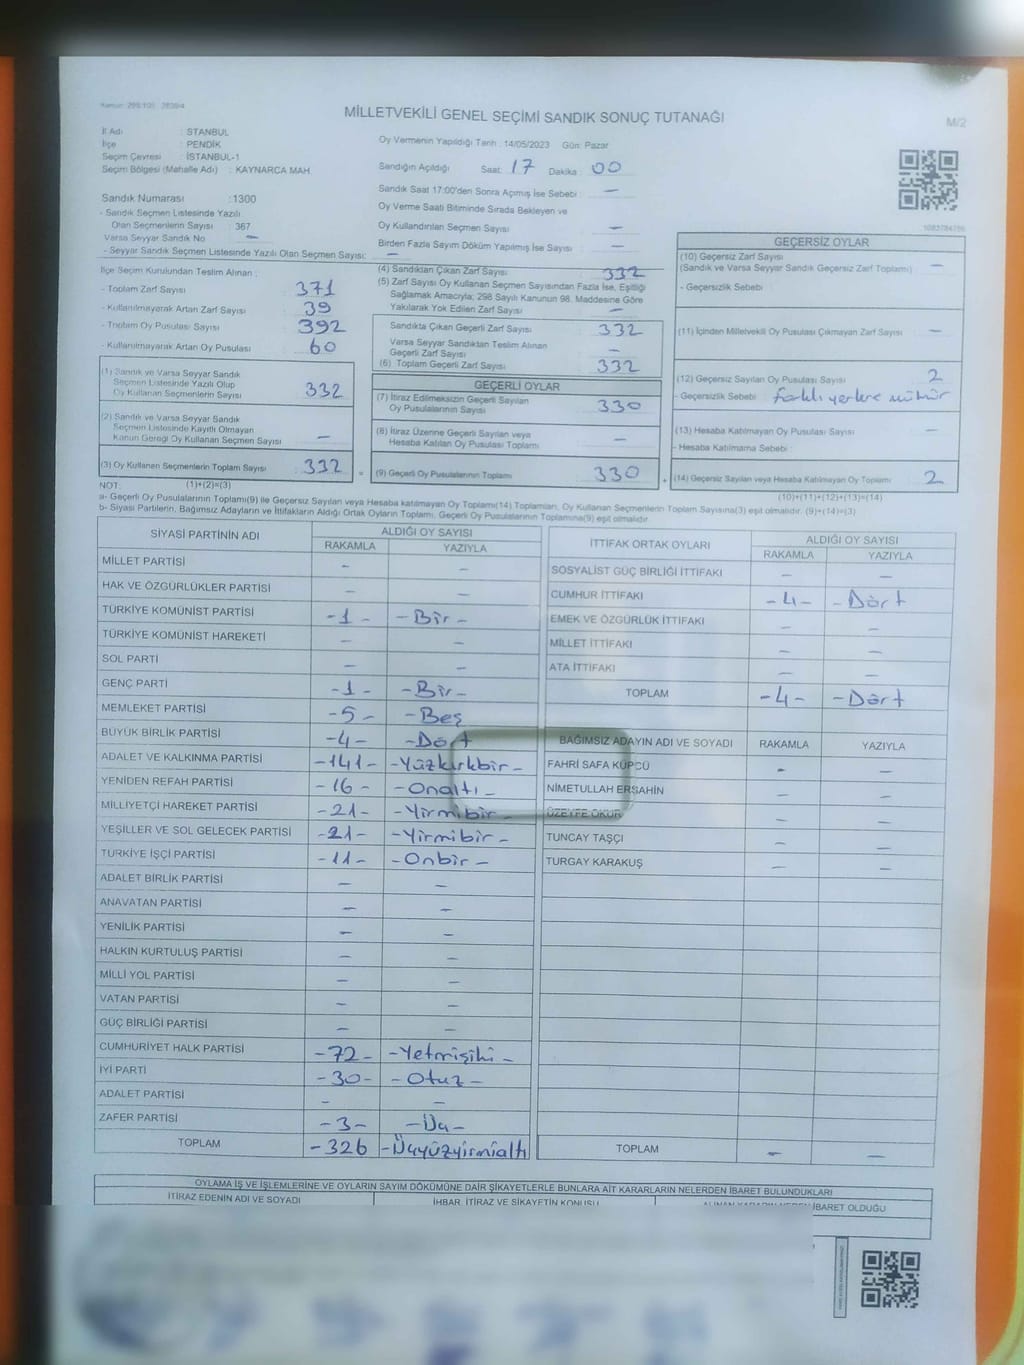 MİLLETVEKİLİ GENEL SEÇİMİ SANDIK SONUÇ TUTANAĞI
M/2
İl Adı : STANBUL
İlçe : PENDİK
Seçim Çevresi : İSTANBUL-1
Seçim Bölgesi (Mahalle Adı) : KAYNARCA MAH.
Sandık Numarası : 1300
- Sandık Seçmen Listesinde Yazılı
Olan Seçmenlerin Sayısı : 367
Varsa Seyyar Sandık No —
- Seyyar Sandık Seçmen Listesinde Yazılı Olan Seçmen Sayısı: —
İlçe Seçim Kurulundan Teslim Alınan :
- Toplam Zarf Sayısı 371
- Kullanılmayarak Artan Zarf Sayısı 39
- Toplam Oy Pusulası Sayısı 392
- Kullanılmayarak Artan Oy Pusulası 60
(1) Sandık ve Varsa Seyyar Sandık
Seçmen Listesinde Yazılı Olup
Oy Kullanan Seçmenlerin Sayısı 332
(2) Sandık ve Varsa Seyyar Sandık
Seçmen Listesinde Kayıtlı Olmayan
Kanun Gereği Oy Kullanan Seçmen Sayısı —
(3) Oy Kullanan Seçmenlerin Toplam Sayısı 332
Oy Vermenin Yapıldığı Tarih : 14/05/2023 Gün: Pazar
Sandığın Açıldığı Saat: 17 Dakika : 00
Sandık Saat 17:00'den Sonra Açılmış İse Sebebi : —
Oy Verme Saati Bitiminde Sırada Bekleyen ve
Oy Kullandırılan Seçmen Sayısı —
Birden Fazla Sayım Döküm Yapılmış İse Sayısı —
(4) Sandıktan Çıkan Zarf Sayısı 332
(5) Zarf Sayısı Oy Kullanan Seçmen Sayısından Fazla İse, Eşitliği
Sağlamak Amacıyla; 298 Sayılı Kanunun 98. Maddesine Göre
Yakılarak Yok Edilen Zarf Sayısı —
Sandıkta Çıkan Geçerli Zarf Sayısı 332
Varsa Seyyar Sandıktan Teslim Alınan
Geçerli Zarf Sayısı —
(6) Toplam Geçerli Zarf Sayısı 332
GEÇERLİ OYLAR
(7) İtiraz Edilmeksizin Geçerli Sayılan
Oy Pusulalarının Sayısı 330
(8) İtiraz Üzerine Geçerli Sayılan veya
Hesaba Katılan Oy Pusulası Toplamı —
(9) Geçerli Oy Pusulalarının Toplamı 330
GEÇERSİZ OYLAR
(10) Geçersiz Zarf Sayısı
(Sandık ve Varsa Seyyar Sandık Geçersiz Zarf Toplamı) —
- Geçersizlik Sebebi
(11) İçinden Milletvekili Oy Pusulası Çıkmayan Zarf Sayısı —
(12) Geçersiz Sayılan Oy Pusulası Sayısı 2
- Geçersizlik Sebebi : farklı yerlere mühür
(13) Hesaba Katılmayan Oy Pusulası Sayısı —
- Hesaba Katılmama Sebebi :
(14) Geçersiz Sayılan veya Hesaba Katılmayan Oy Toplamı 2
NOT: (1)+(2)=(3) (10)+(11)+(12)+(13)=(14)
a- Geçerli Oy Pusulalarının Toplamı(9) ile Geçersiz Sayılan veya Hesaba katılmayan Oy Toplamı(14) Toplamları, Oy Kullanan Seçmenlerin Toplam Sayısına(3) eşit olmalıdır. (9)+(14)=(3)
b- Siyasi Partilerin, Bağımsız Adayların ve İttifakların Aldığı Ortak Oyların Toplamı, Geçerli Oy Pusulalarının Toplamına(9) eşit olmalıdır.
SİYASİ PARTİNİN ADI ALDIĞI OY SAYISI
RAKAMLA YAZIYLA
MİLLET PARTİSİ - -
HAK VE ÖZGÜRLÜKLER PARTİSİ - -
TÜRKİYE KOMÜNİST PARTİSİ -1- -Bir-
TÜRKİYE KOMÜNİST HAREKETİ - -
SOL PARTİ - -
GENÇ PARTİ -1- -Bir-
MEMLEKET PARTİSİ -5- -Beş
BÜYÜK BİRLİK PARTİSİ -4- -Dört
ADALET VE KALKINMA PARTİSİ -141- -Yüzkırkbir-
YENİDEN REFAH PARTİSİ -16- -Onaltı-
MİLLİYETÇİ HAREKET PARTİSİ -21- -Yirmibir
YEŞİLLER VE SOL GELECEK PARTİSİ -21- -Yirmibir-
TÜRKİYE İŞÇİ PARTİSİ -11- -Onbir-
ADALET BİRLİK PARTİSİ - -
ANAVATAN PARTİSİ - -
YENİLİK PARTİSİ - -
HALKIN KURTULUŞ PARTİSİ - -
MİLLİ YOL PARTİSİ - -
VATAN PARTİSİ - -
GÜÇ BİRLİĞİ PARTİSİ - -
CUMHURİYET HALK PARTİSİ -72- -Yetmişiki-
İYİ PARTİ -30- -Otuz-
ADALET PARTİSİ - -
ZAFER PARTİSİ -3- -Üç-
TOPLAM -326 -Üçyüzyirmialtı
İTTİFAK ORTAK OYLARI ALDIĞI OY SAYISI
RAKAMLA YAZIYLA
SOSYALİST GÜÇ BİRLİĞİ İTTİFAKI - -
CUMHUR İTTİFAKI -4- -Dört
EMEK VE ÖZGÜRLÜK İTTİFAKI - -
MİLLET İTTİFAKI - -
ATA İTTİFAKI - -
TOPLAM -4- -Dört
BAĞIMSIZ ADAYIN ADI VE SOYADI RAKAMLA YAZIYLA
FAHRİ SAFA KÜPCÜ - -
NİMETULLAH ERŞAHİN - -
ÜZEYFE OKUR - -
TUNCAY TAŞÇI - -
TURGAY KARAKUŞ - -
TOPLAM - -
OYLAMA İŞ VE İŞLEMLERİNE VE OYLARIN SAYIM DÖKÜMÜNE DAİR ŞİKAYETLERLE BUNLARA AİT KARARLARIN NELERDEN İBARET BULUNDUKLARI
İTİRAZ EDENİN ADI VE SOYADI İHBAR, İTİRAZ VE ŞİKAYETİN KONUSU İBARET OLDUĞU